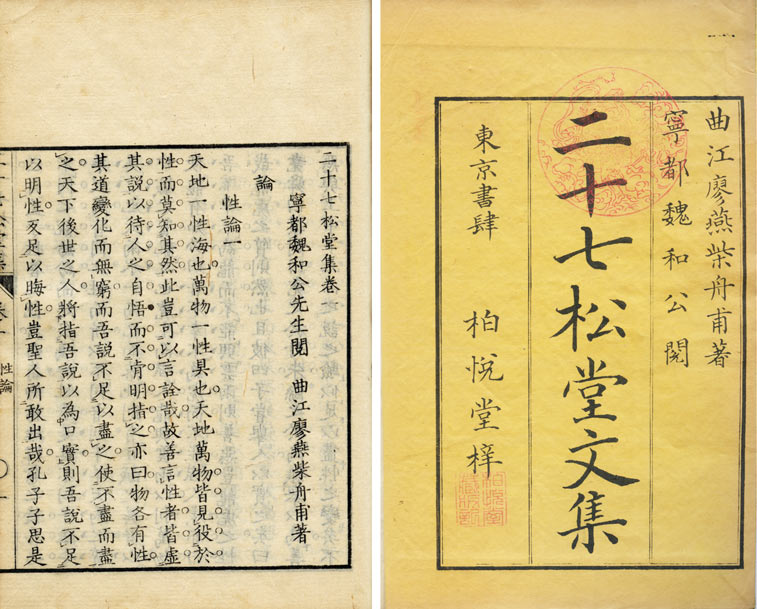 曲江廖燕柴舟甫著
寧都魏和公閱
二十七松堂文集
東京書肆 柏悅堂梓
二十七松堂集卷一
寧都魏和公先生閱 曲江廖燕柴舟甫著
論
性論一
天地一性海也萬物一性具也天地萬物皆見役於
性而莫知其然此豈可以言詮哉故善言性者皆虛
其說以待人之自悟而不肯明指之亦曰物各有性
其道變化而無窮而吾說不足以盡之使不盡而盡
之天下後世之人將指吾說以為口實則吾說不足
以明性反足以晦性豈聖人所敢出哉孔子子思是
二十七松堂集 卷一 性論 一